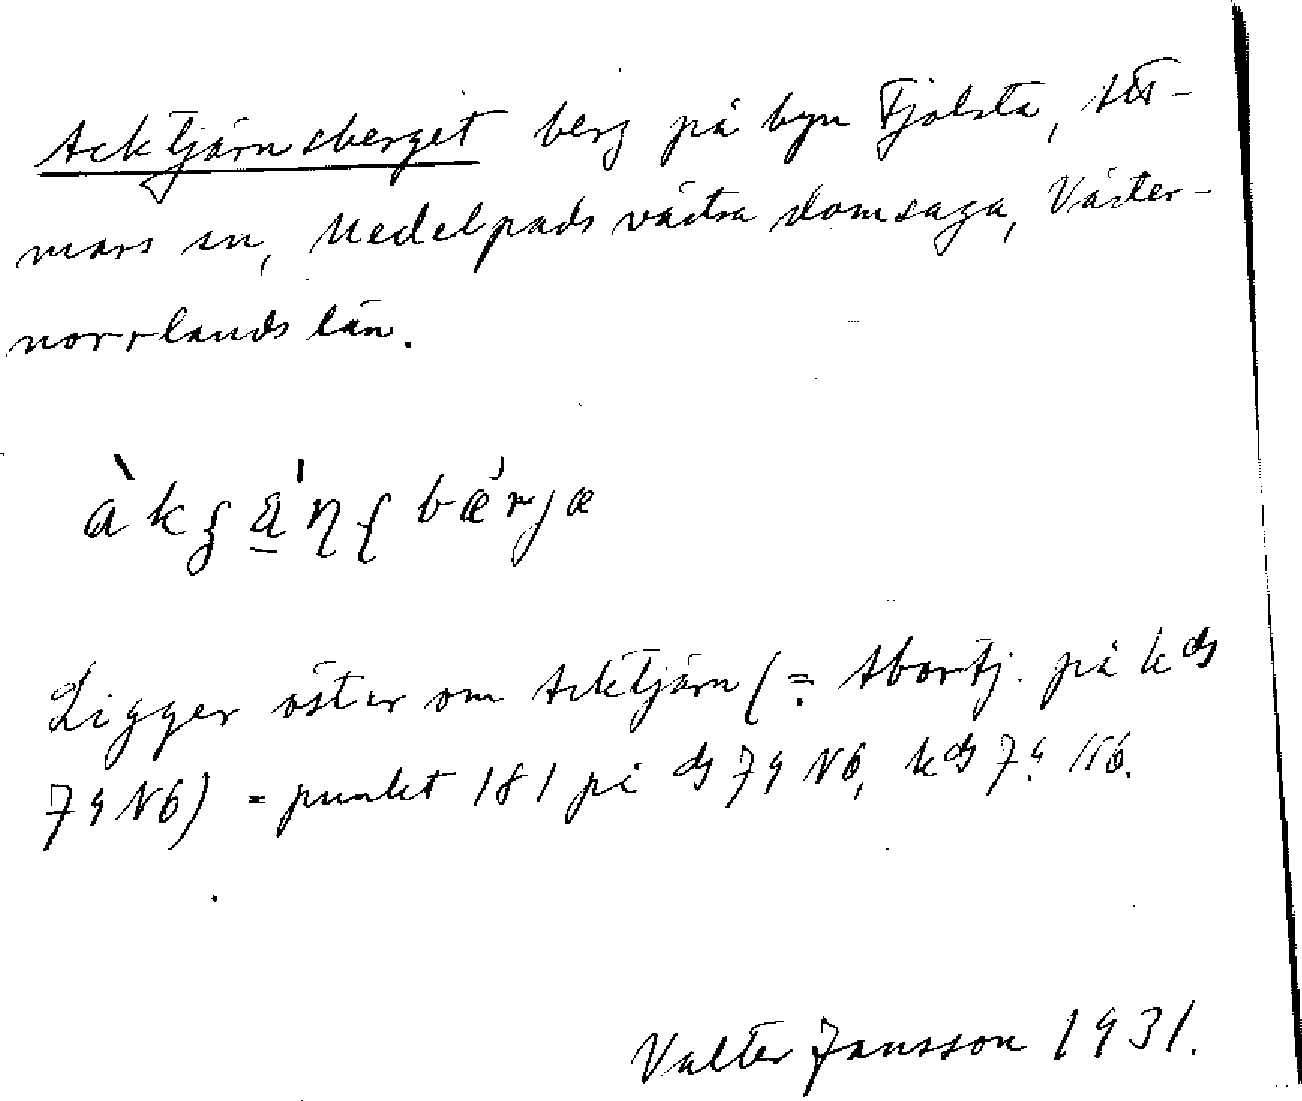 Acktjärnsberget berg på byn Fjolsta, Att-
mars sn, Medelpads västra domsaga, Väster-
norrlands län.
Ligger öster om Acktjärn (= Abortj. på kds
79 N6) = punkt 181 på ds 79 N6, kds 79 N6.
Valter Jansson 1931.